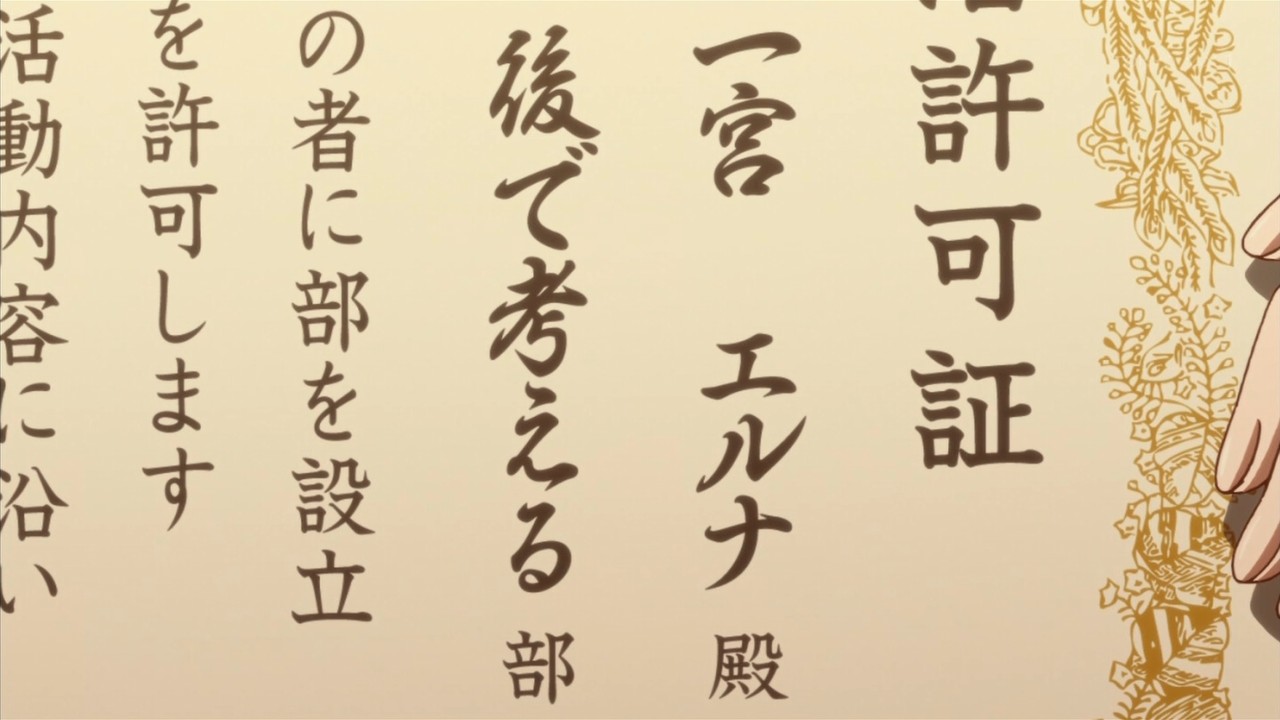 許可証
一宮 エルナ 殿
後で考える 部
の者に部を設立
を許可します
活動内容に沿い